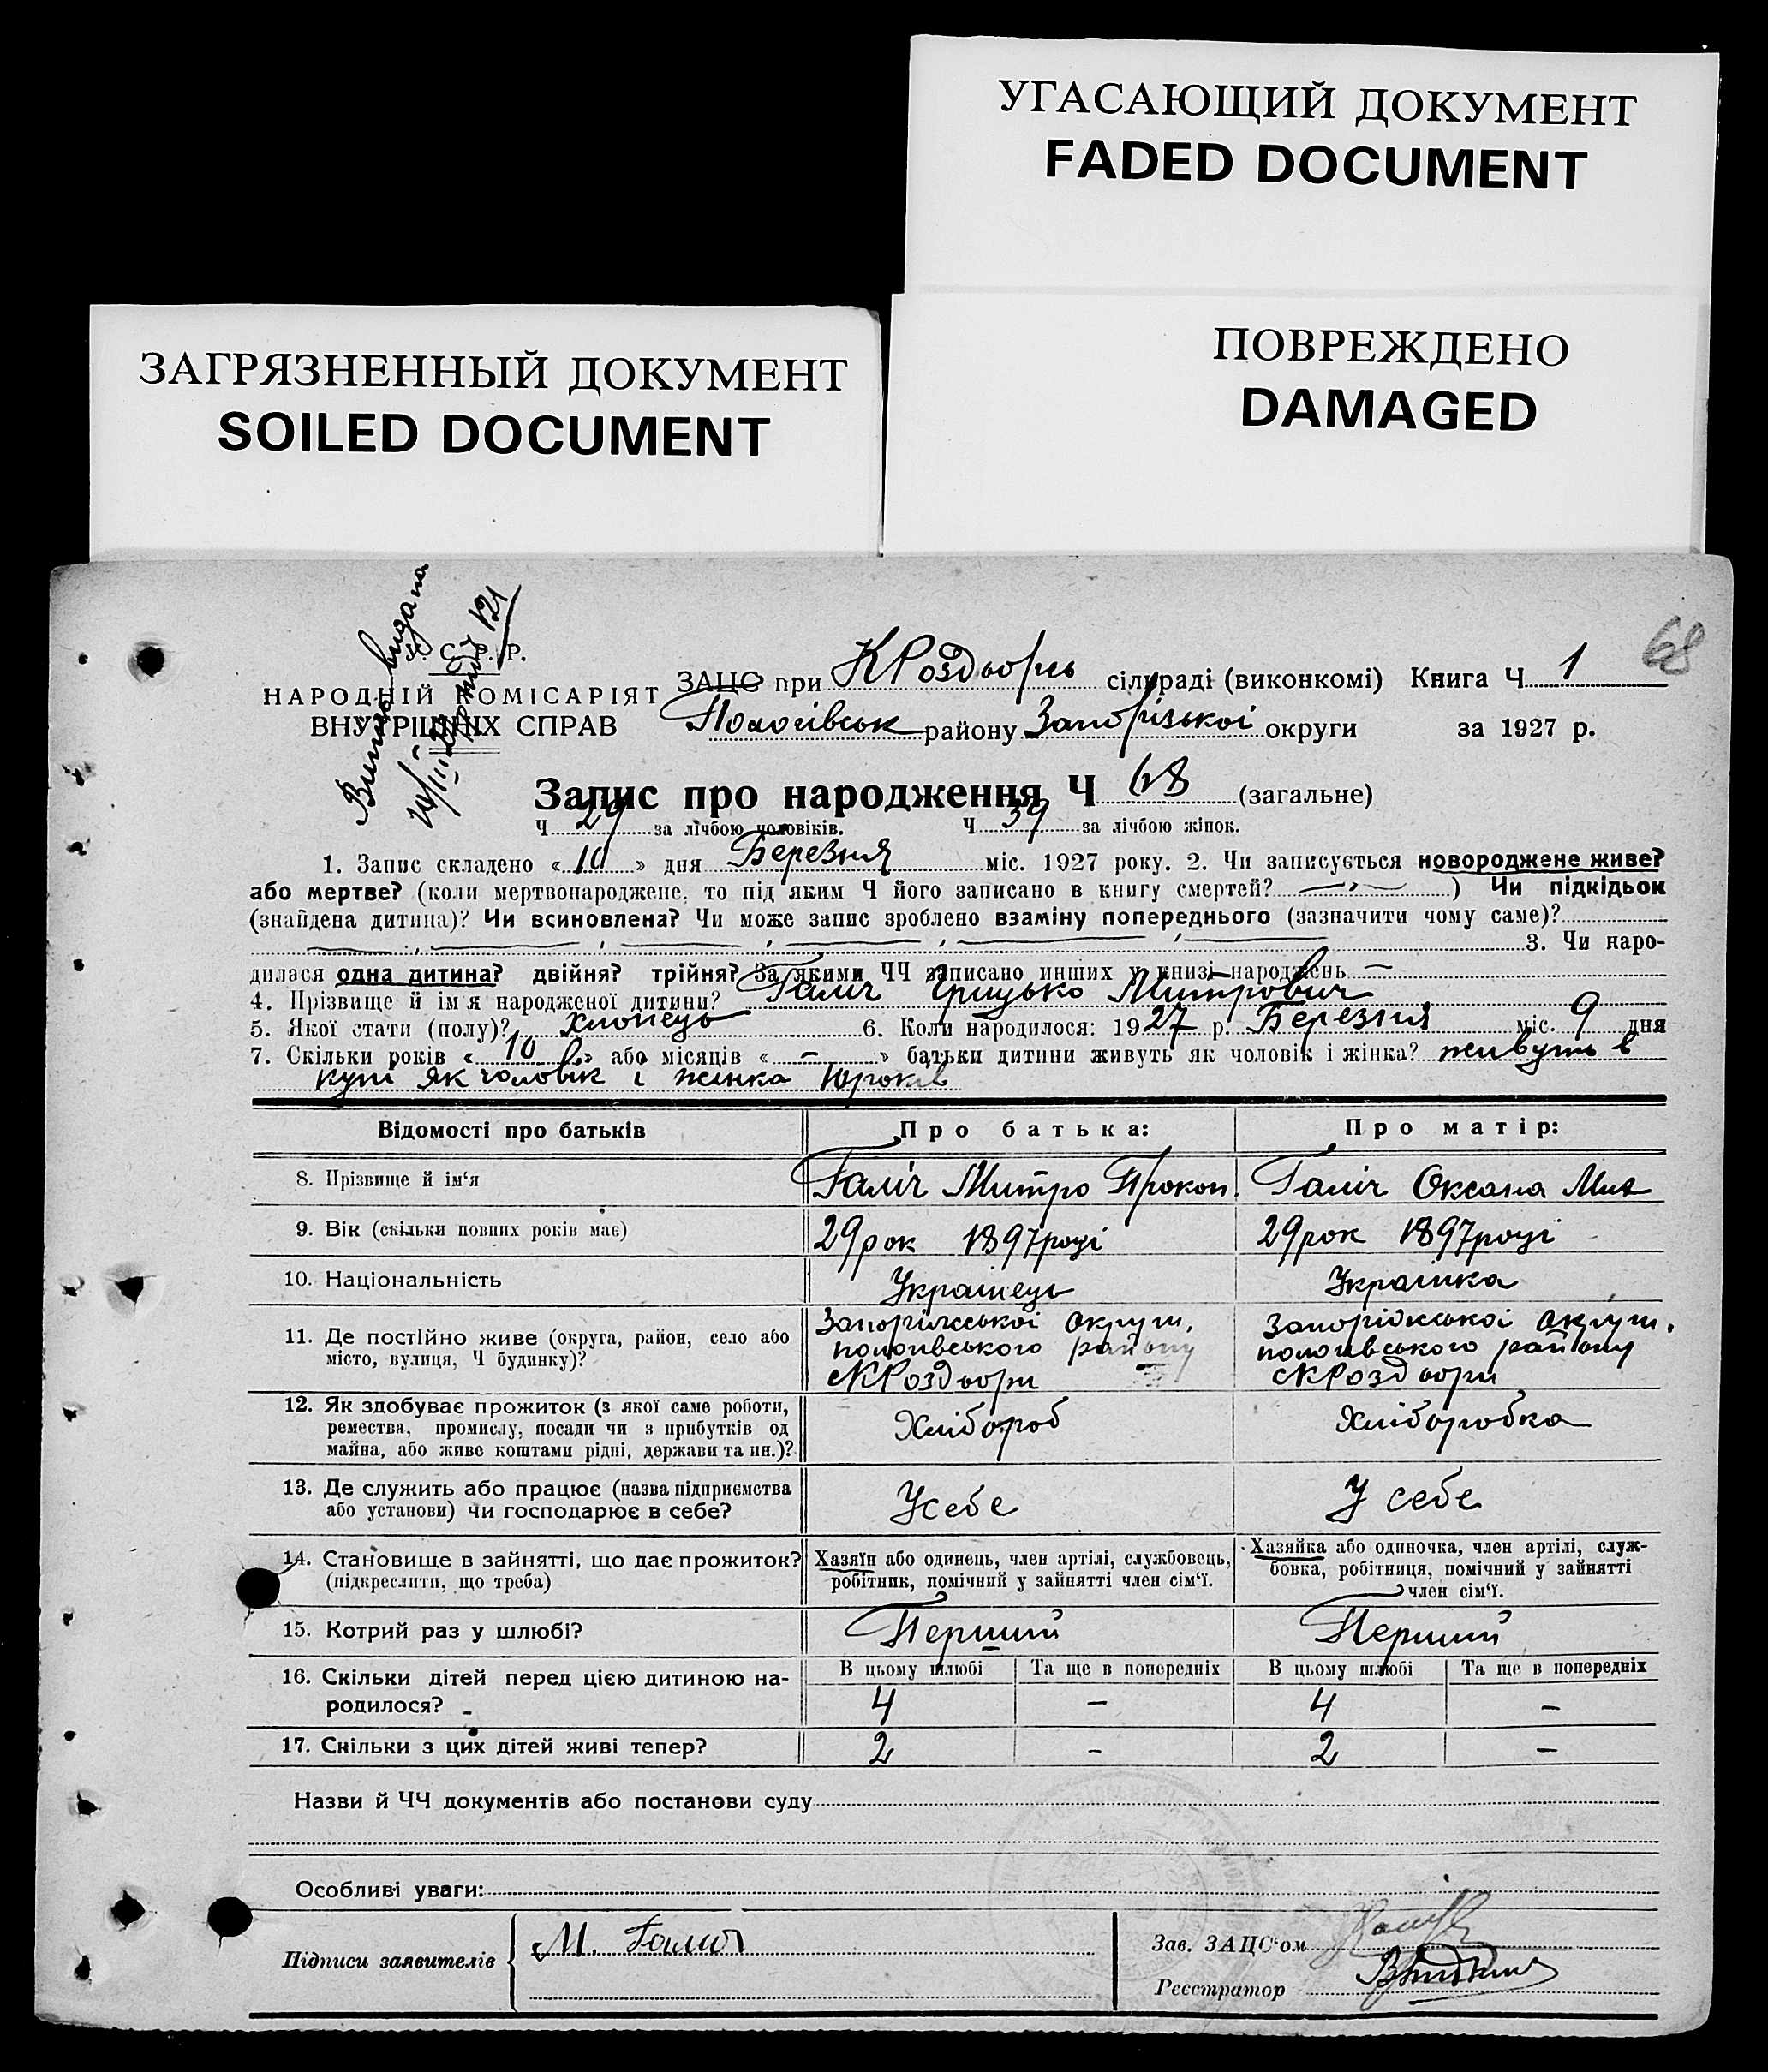 УГАСАЮЩИЙ ДОКУМЕНТ
FADED DOCUMENT
ЗАГРЯЗНЕННЫЙ ДОКУМЕНТ
SOILED DOCUMENT
ПОВРЕЖДЕНО
DAMAGED
68
Випись видана
У. С. Р. Р.
НАРОДНІЙ КОМІСАРІЯТ
ВНУТРІШНІХ СПРАВ
ЗАЦС при КРоздорсь сільраді (виконкомі) Книга Ч 1
Пологівськ району Запорізької округи за 1927 р.
Запис про народження Ч 68 (загальне)
Ч 29 за лічбою чоловіків. Ч 39 за лічбою жінок.
1. Запис складено «10» дня Березня міс. 1927 року. 2. Чи записується новороджене живе?
або мертве? (коли мертвонароджене, то під яким Ч його записано в книгу смертей? —) Чи підкідьок
(знайдена дитина)? Чи всиновлена? Чи може запис зроблено взаміну попереднього (зазначити чому саме)?
3. Чи наро-
дилася одна дитина? двійня? трійня? За якими ЧЧ записано инших у книзі народжень —
4. Прізвище й ім'я народженої дитини? Галіч Грицько Митрович
5. Якої стати (полу)? Хлопець 6. Коли народилося: 1927 р. Березня міс. 9 дня
7. Скільки років «10» або місяців «-» батьки дитини живуть як чоловік і жінка? живуть в
купі як чоловік і жінка 10 років
Відомості про батьків Про батька: Про матір:
8. Прізвище й ім'я Галіч Митро Прокоп. Галіч Оксана
9. Вік (скільки повних років має) 29 рок 1897 році 29 рок 1897 році
10. Національність Українець Українка
11. Де постійно живе (округа, район, село або
місто, вулиця, Ч будинку)?
Запоріжської округи,
пологівського району
с КРоздори
Запоріжської округи,
пологівського району
с КРоздори
12. Як здобуває прожиток (з якої саме роботи,
ремества, промислу, посади чи з прибутків од
майна, або живе коштами рідні, держави та ин.)?
Хлібороб Хлібробка
13. Де служить або працює (назва підприємства
або установи) чи господарює в себе?
У себе У себе
14. Становище в зайнятті, що дає прожиток?
(підкреслити, що треба)
Хазяїн або одинець, член артілі, службовець,
робітник, помічний у зайнятті член сім'ї.
Хазяйка або одиночка, член артілі, служ-
бовка, робітниця, помічний у зайнятті
член сім'ї.
15. Котрий раз у шлюбі? Перший Перший
16. Скільки дітей перед цією дитиною на-
родилося?
В цьому шлюбі Та ще в попередніх В цьому шлюбі Та ще в попередніх
4 - 4 -
17. Скільки з цих дітей живі тепер? 2 - 2 -
Назви й ЧЧ документів або постанови суду
Особливі уваги:
Підписи заявителів М. Галич
Зав. ЗАЦС'ом
Реєстратор